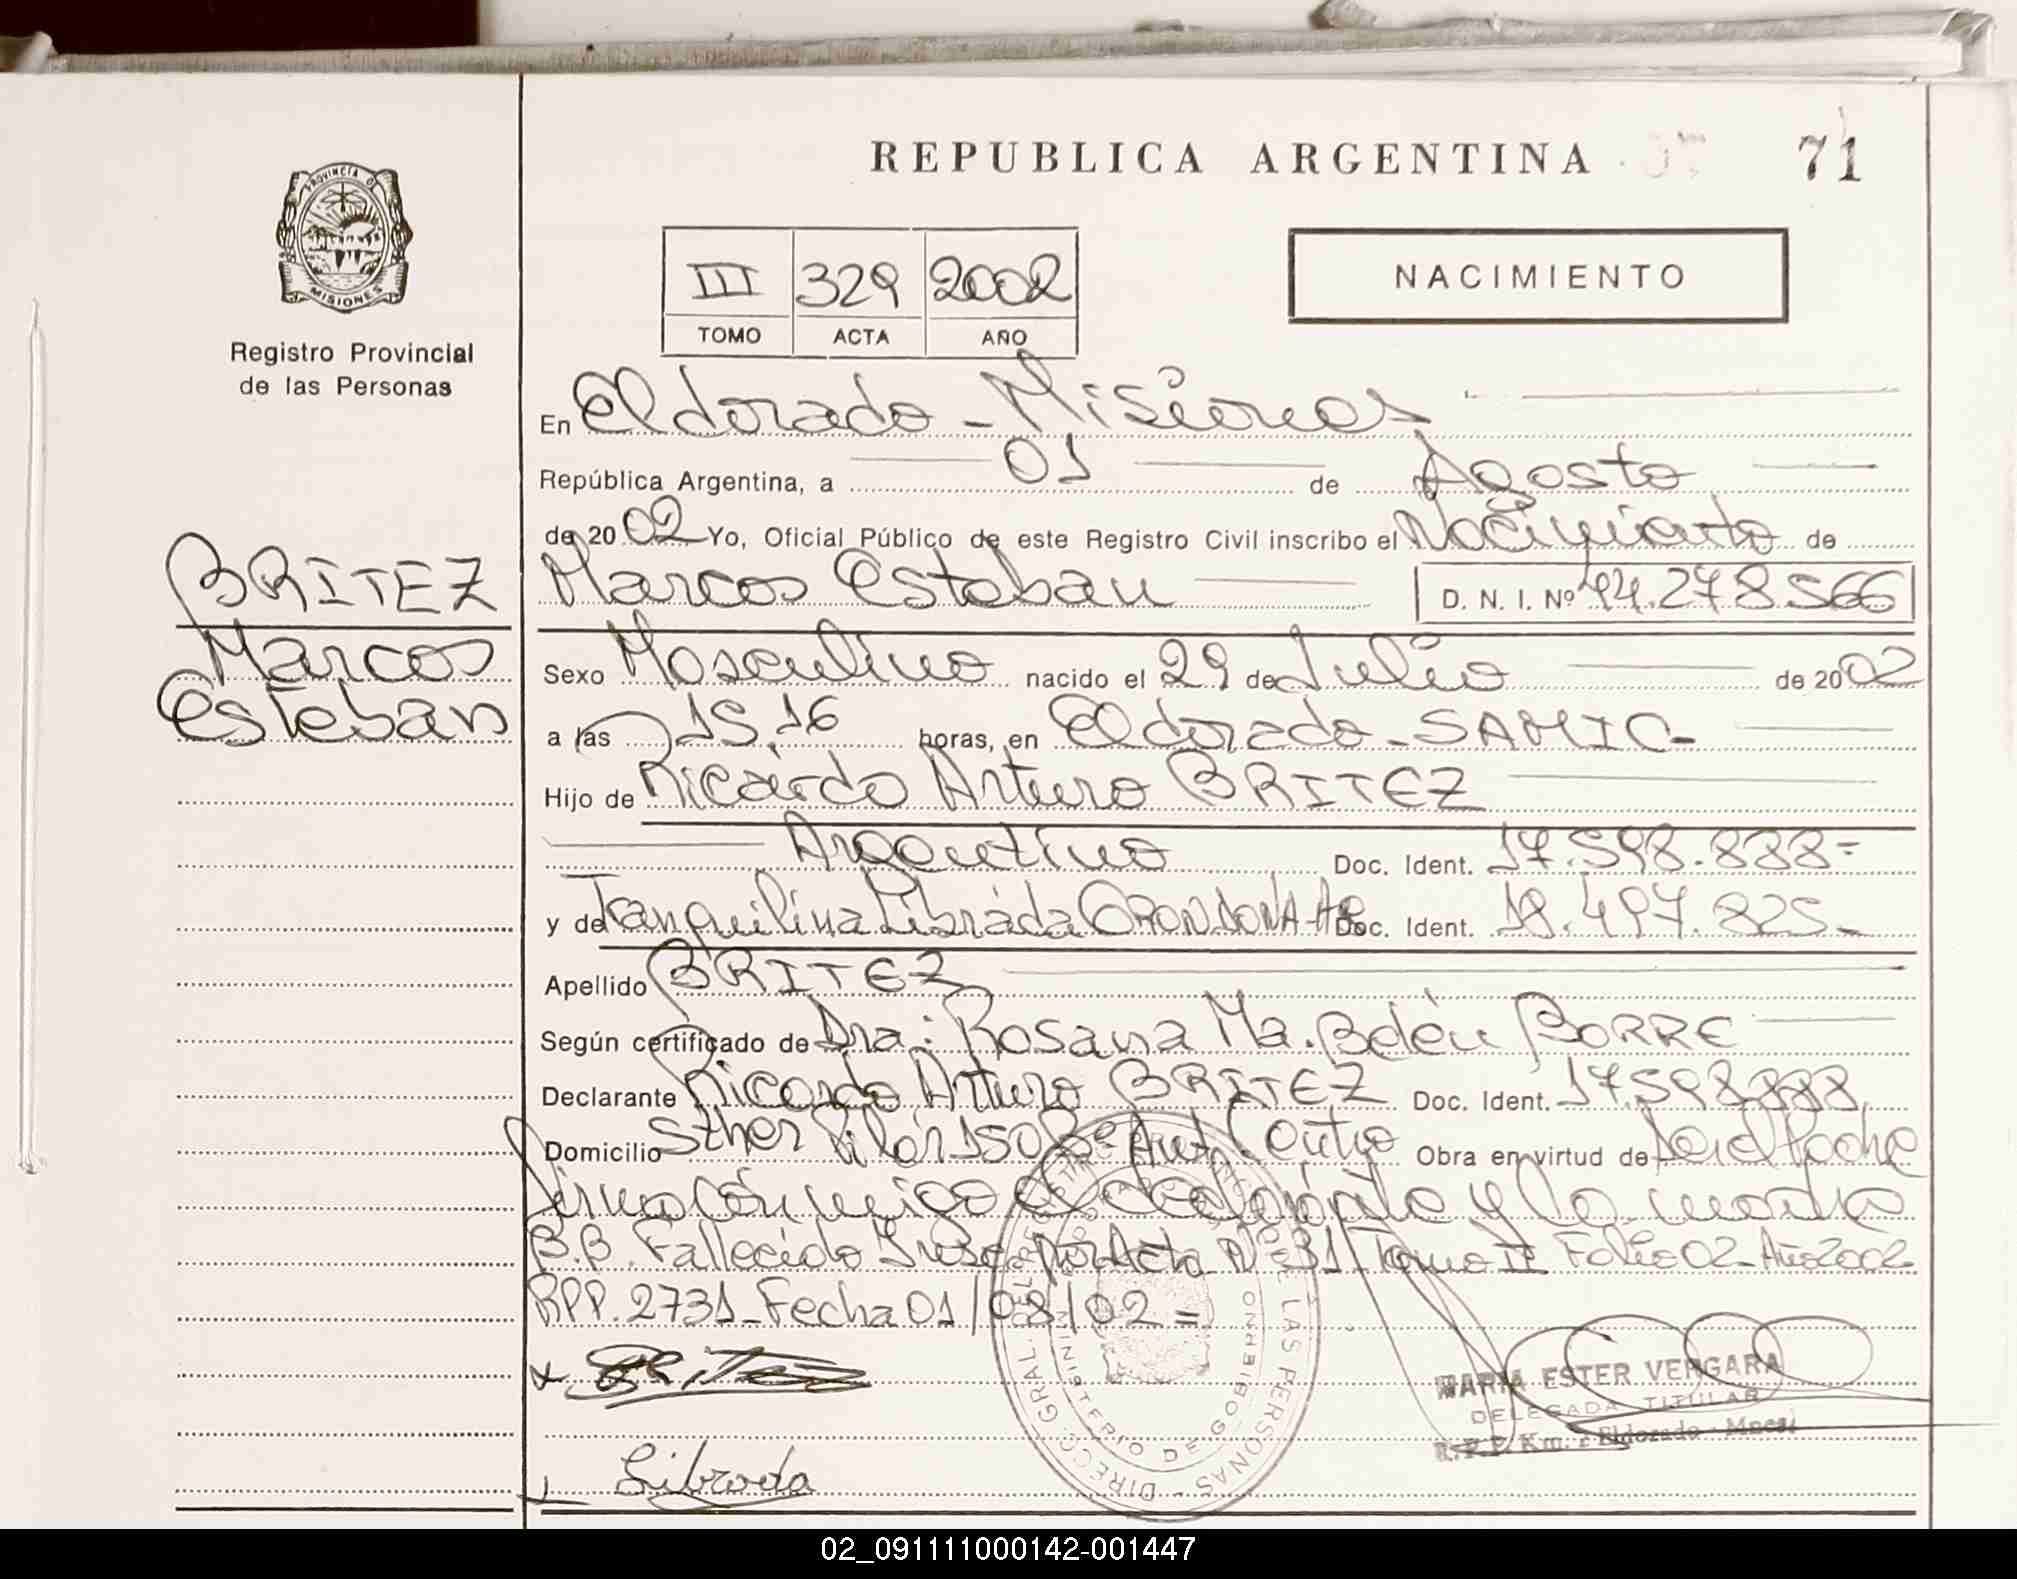 REPUBLICA ARGENTINA 71
PROVINCIA DE
MISIONES
Registro Provincial
de las Personas
NACIMIENTO
III 329 2002
TOMO ACTA AÑO
En Eldorado - Misiones
República Argentina, a 01 de Agosto
de 2002 Yo, Oficial Público de este Registro Civil inscribo el Nacimiento de
BRITEZ
Marcos
Esteban
Marcos Esteban D. N. I. Nº 44.278566
Sexo Masculino nacido el 29 de Julio de 2002
a las 15,16 horas, en Eldorado - SAMIC -
Hijo de Ricardo Arturo BRITEZ
Argentino Doc. Ident. 17.598.888=
y de Tranquilina Librada Doc. Ident. 18.497.825-
Apellido BRITEZ
Según certificado de Dra: Rosana Ma. Belén BORRE
Declarante Ricardo Arturo BRITEZ Doc. Ident. 17.598.888
Domicilio Obra en virtud de
Firma conmigo el declarante y la madre
B.B. Fallecido Insc. por Acta Nº 31 Tomo II Folio 02 - Año 2002
RPP. 2731 - Fecha 01/08/02 =
Britez
MARIA ESTER VERGARA
DELEGADA TITULAR
Librada
DIRECC. GRAL. DEL REGISTRO DE LAS PERSONAS
MINISTERIO DE GOBIERNO
02_091111000142-001447